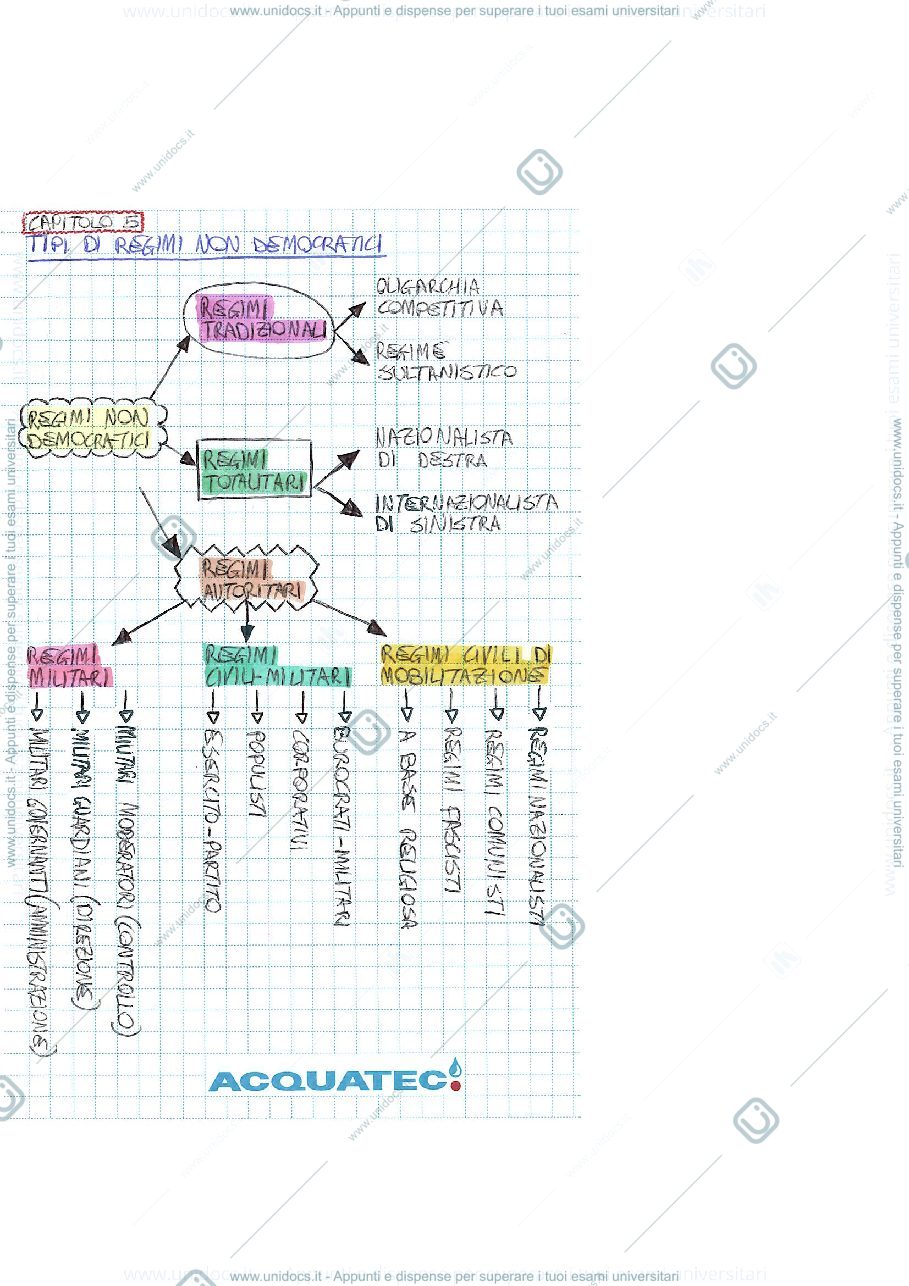 www.unidocs.it - Appunti e dispense per superare i tuoi esami universitari
CAPITOLO 5
TIPI DI REGIMI NON DEMOCRATICI
OLIGARCHIA
COMPETITIVA
REGIMI
TRADIZIONALI
REGIME
SULTANISTICO
REGIMI NON
DEMOCRATICI
NAZIONALISTA
DI DESTRA
REGIMI
TOTALITARI
INTERNAZIONALISTA
DI SINISTRA
REGIMI
AUTORITARI
REGIMI
MILITARI
REGIMI
CIVILI-MILITARI
REGIMI CIVILI DI
MOBILITAZIONE
MILITARI GOVERNANTI (AMMINISTRAZIONE)
MILITARI GUARDIANI (DIREZIONE)
MILITARI MODERATORI (CONTROLLO)
ESSERCITO-PARTITO
POPULISTI
CORPORATIVI
BUROCRATI-MILITARI
A BASE RELIGIOSA
REGIMI FASCISTI
REGIMI COMUNISTI
REGIMI NAZIONALISTI
ACQUATEC
www.unidocs.it - Appunti e dispense per superare i tuoi esami universitari
www.unidocs.it - Appunti e dispense per superare i tuoi esami universitari
www.unidocs.it - Appunti e dispense per superare i tuoi esami universitari
www.unidocs.it
www.unidocs.it
www.unidocs.it
www.unidocs.it
www.unidocs.it